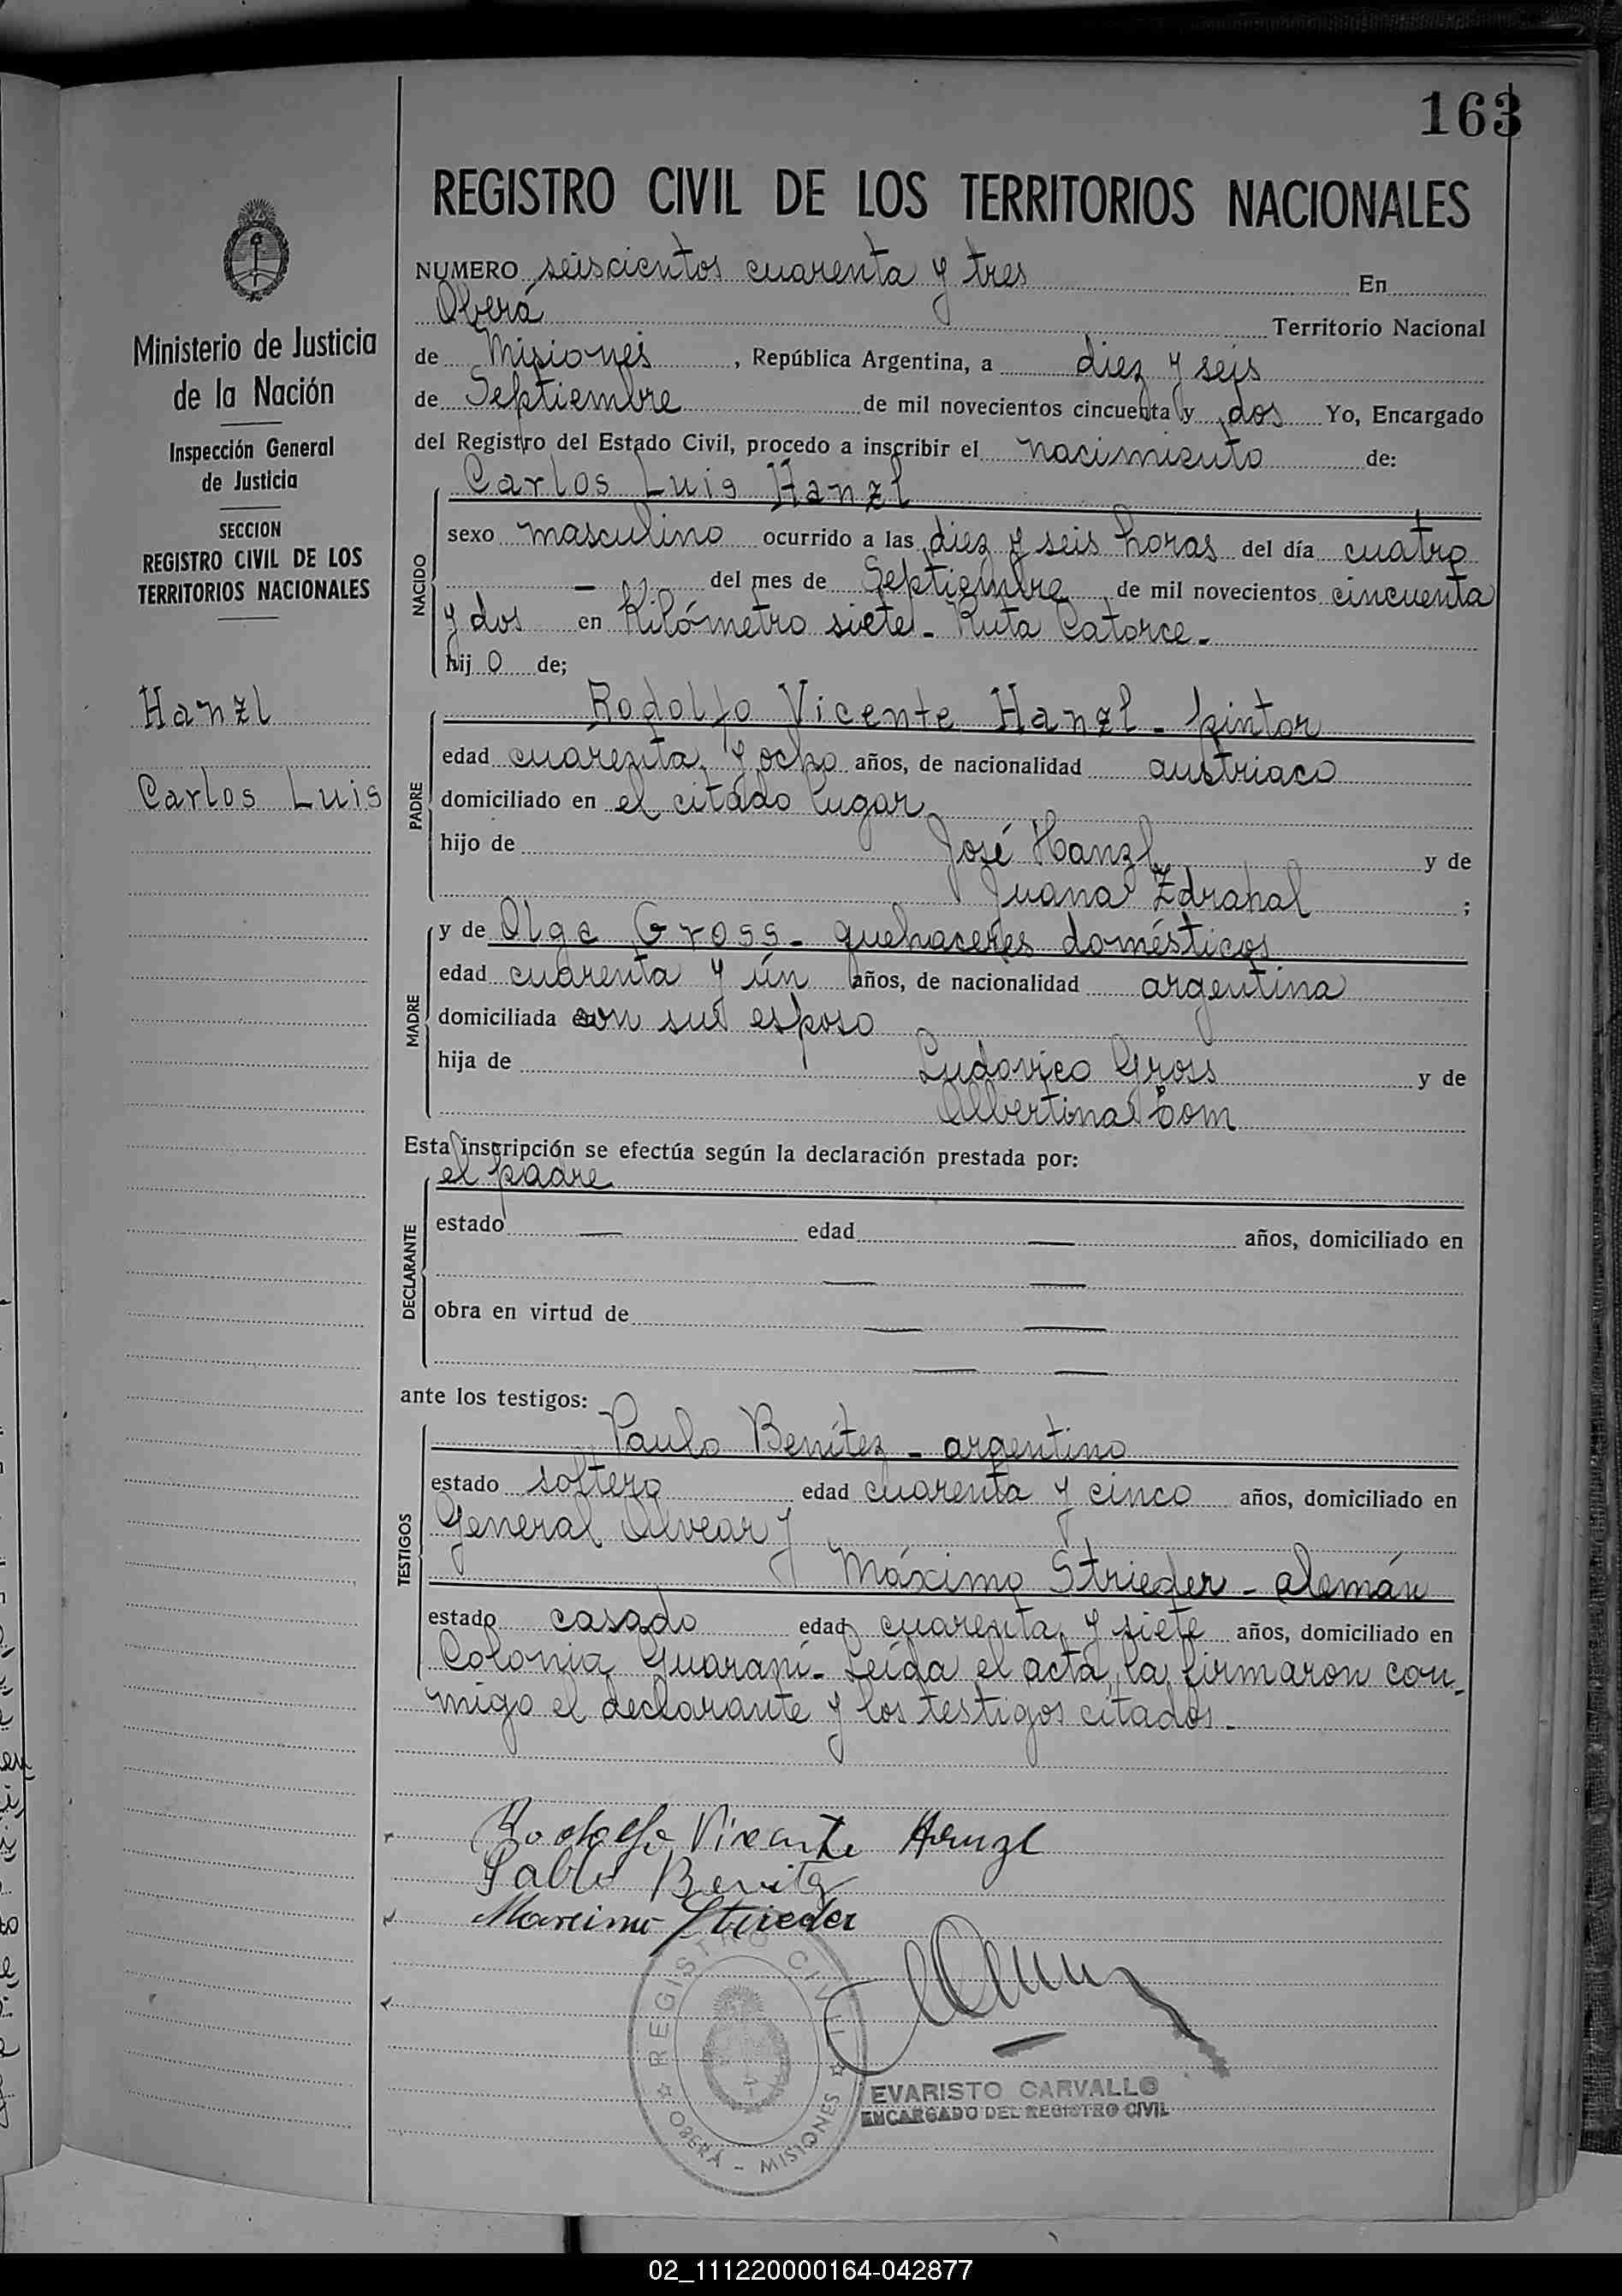 163
REGISTRO CIVIL DE LOS TERRITORIOS NACIONALES
Ministerio de Justicia
de la Nación
Inspección General
de Justicia
SECCION
REGISTRO CIVIL DE LOS
TERRITORIOS NACIONALES
Hanzl
Carlos Luis
NUMERO seiscientos cuarenta y tres En
Oberá Territorio Nacional
de Misiones, República Argentina, a diez y seis
de Septiembre de mil novecientos cincuenta y dos Yo, Encargado
del Registro del Estado Civil, procedo a inscribir el nacimiento de:
NACIDO
Carlos Luis Hanzl
sexo masculino ocurrido a las diez y seis horas del día cuatro
— del mes de Septiembre de mil novecientos cincuenta
y dos en Kilómetro siete - Ruta Catorce -
hij o de;
PADRE
Rodolfo Vicente Hanzl - pintor
edad cuarenta y ocho años, de nacionalidad austriaco
domiciliado en el citado lugar
hijo de José Hanzl y de
Juana Zdrahal ;
MADRE
y de Olga Gross - quehaceres domésticos
edad cuarenta y ún años, de nacionalidad argentina
domiciliada con su esposo
hija de Ludovico Gross y de
Albertina Com
Esta inscripción se efectúa según la declaración prestada por:
DECLARANTE
el padre
estado — edad — años, domiciliado en
— —
obra en virtud de — —
— —
ante los testigos:
TESTIGOS
Paulo Benítez - argentino
estado soltero edad cuarenta y cinco años, domiciliado en
General Alvear y
Máximo Strieder - alemán
estado casado edad cuarenta y siete años, domiciliado en
Colonia Guaraní - Leída el acta, la firmaron con-
migo el declarante y los testigos citados -
Rodolfo Vicente Hanzl
Pablo Benitez
Maximo Strieder
REGISTRO CIVIL
OBERÁ - MISIONES
EVARISTO CARVALLO
ENCARGADO DEL REGISTRO CIVIL
02_111220000164-042877